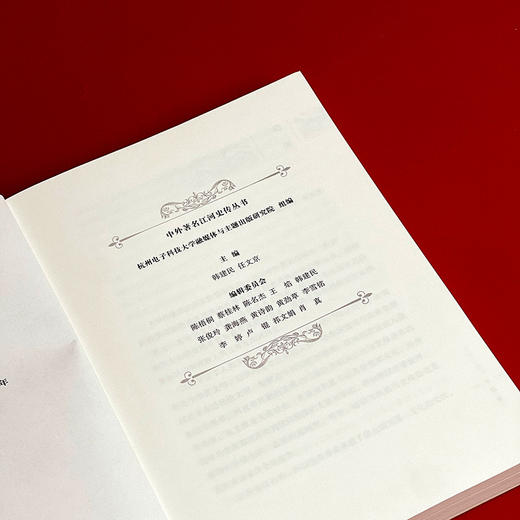 中外著名江河史传丛书
杭州电子科技大学融媒体与主题出版研究院 组编
主 编
韩建民 任文京
编辑委员会
陈梧桐 蔡桂林 陈名杰 王 焰 韩建民
张俊玲 龚海燕 黄诗韵 黄劲草 李雪铭
李 婷 卢 锟 祁文娟 肖 真
年